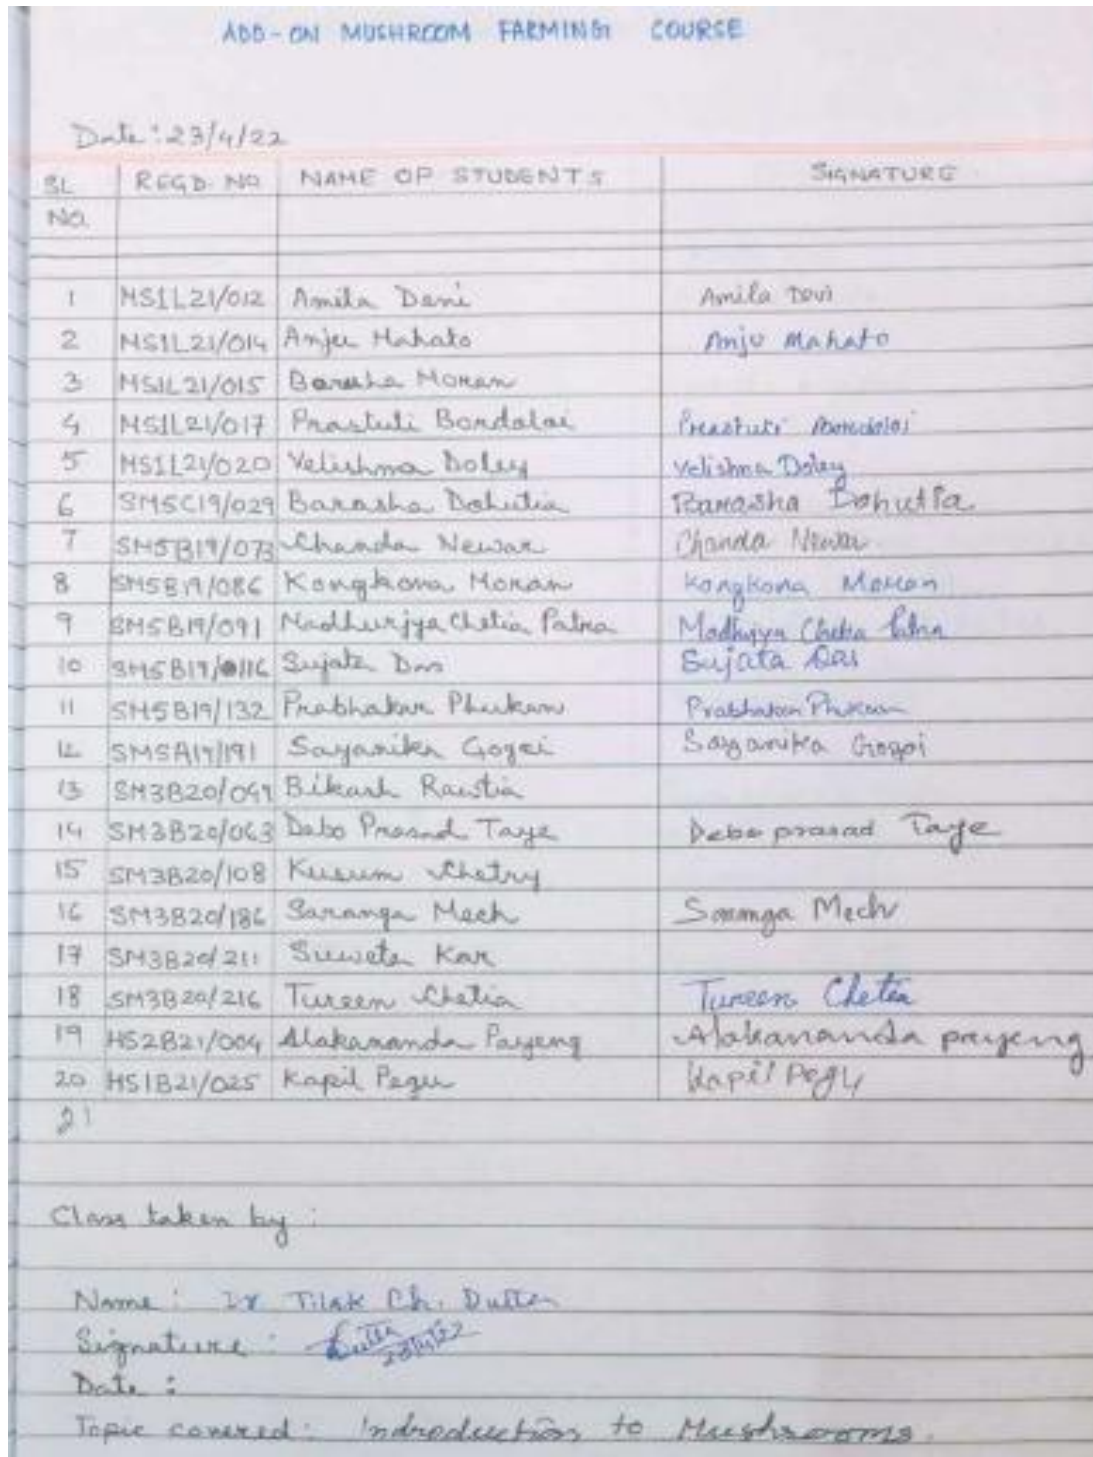 ADD-ON MUSHROOM FARMING COURSE
Date: 23/4/22
SL NO. REGD. NO NAME OF STUDENTS SIGNATURE
1 MS1L21/012 Amila Devi Amila Devi
2 MS1L21/014 Anju Mahato Anju Mahato
3 MS1L21/015 Barasha Moran
4 MS1L21/017 Prastuti Bordoloi Prastuti Bordoloi
5 MS1L21/020 Velishma Doley Velishma Doley
6 SM5C19/029 Barasha Dohutia Barasha Dohutia
7 SM5B19/073 Chanda Newar Chanda Newar
8 SM5B19/086 Kongkona Moran Kongkona Moran
9 SM5B19/091 Madhurjya Chetia Patra Madhurjya Chetia Patra
10 SM5B19/0116 Sujata Das Sujata Das
11 SM5B19/132 Prabhakar Phukan Prabhakar Phukan
12 SM5A19/191 Sayanika Gogoi Sayanika Gogoi
13 SM3B20/049 Bikash Rautia
14 SM3B20/063 Debo Prasad Taye Debo prasad Taye
15 SM3B20/108 Kusum Chetry
16 SM3B20/186 Saranga Mech Saranga Mech
17 SM3B20/211 Suweta Kar
18 SM3B20/216 Tureen Chetia Tureen Chetia
19 HS2B21/004 Alakananda Payeng Alakananda payeng
20 HS1B21/025 Kapil Pegu Kapil Pegu
21
Class taken by :
Name : Dr Tilak Ch. Dutta
Signature : Dutta 23/4/22
Date :
Topic covered : Indroduction to Mushrooms.